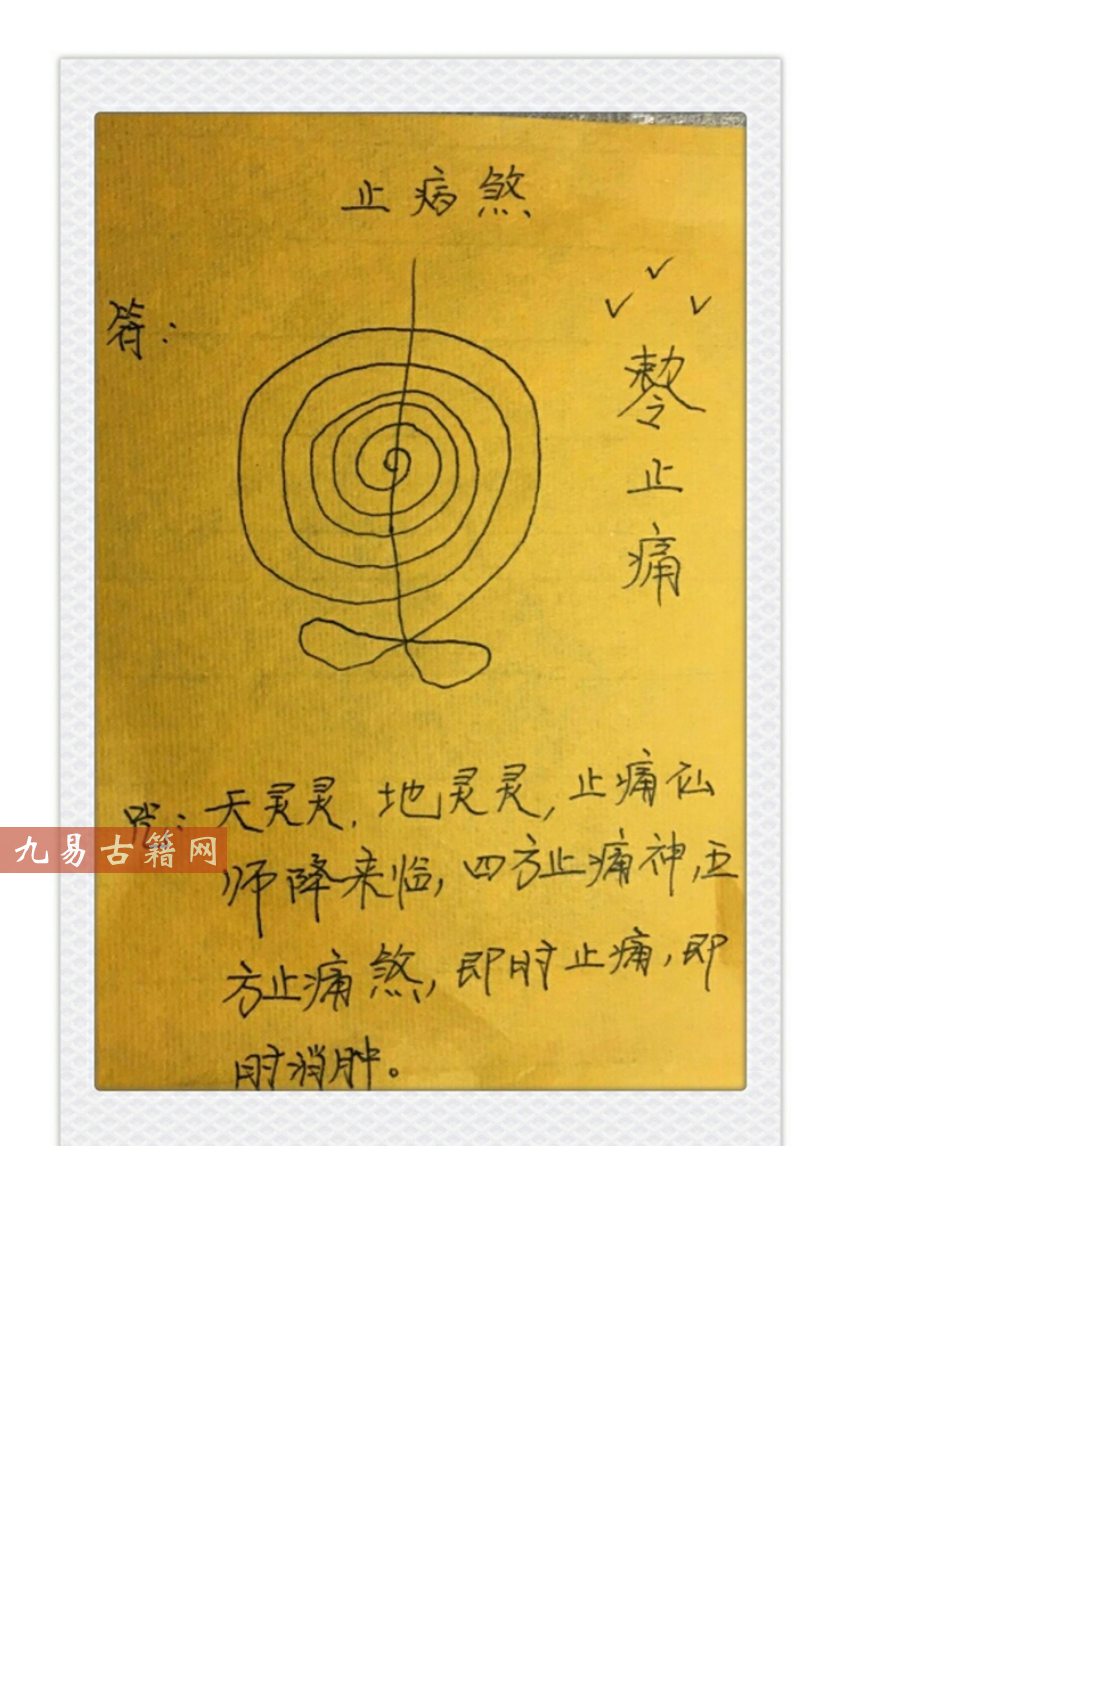 止病煞
符：
敕令
止
痛
咒：天灵灵，地灵灵，止痛仙
师降来临，四方止痛神，五
方止痛煞，即时止痛，即
时消肿。
九易古籍网